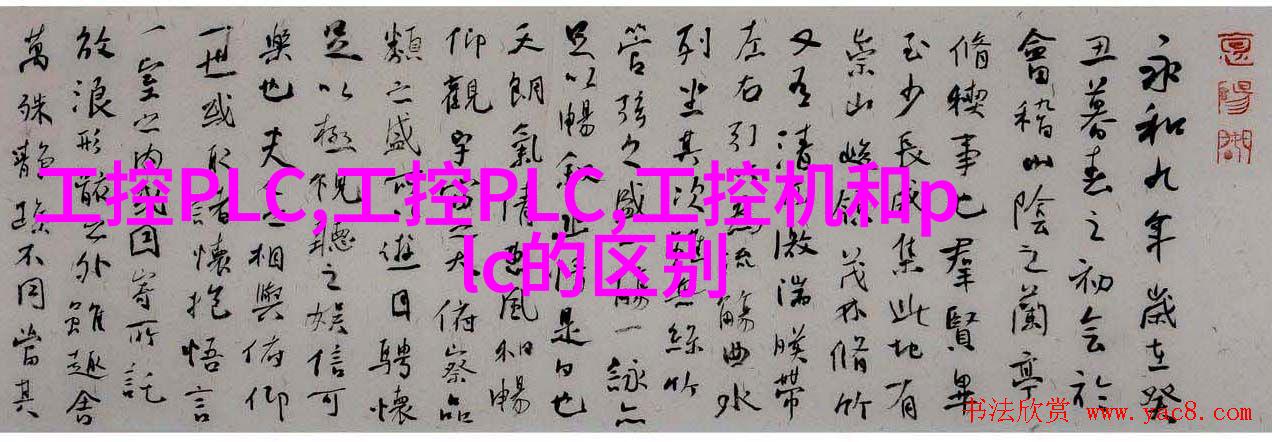 工控PLC,工控PLC,工控机和p
lc的区别
永和九年歲在癸
丑暮春之初會於
會稽山陰之蘭亭
脩稧事也羣賢畢
至少長咸集此地有
崇山峻領茂林脩竹
又有清激湍暎帶
左右引為流觴曲水
列坐其次雖無絲竹
管弦之盛一觴一詠亦
足以暢敘幽情是日也
天朗氣清惠風和暢
仰觀宇宙之大俯察品
類之盛遊目騁懷
足以極視聽之娛信可
樂也夫人之相與俯仰
一世或取諸懷抱悟言
一室之內或因寄所託
放浪形骸之外雖趣舍
萬殊靜躁不同當其
书法欣赏 www.yac8.com